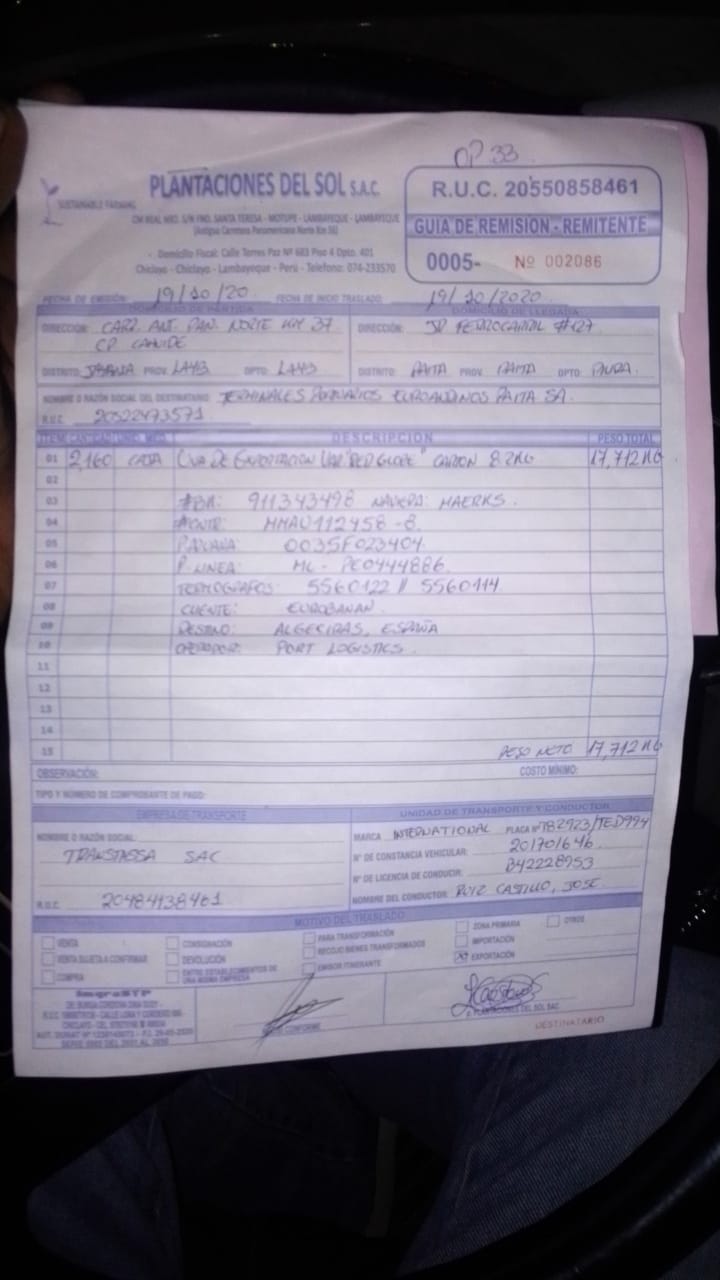 OP 33
PLANTACIONES DEL SOL S.A.C.
SUSTAINABLE FARMING
CM REAL NRO. S/N FND. SANTA TERESA - MOTUPE - LAMBAYEQUE - LAMBAYEQUE
(Antigua Carretera Panamericana Norte Km 36)
Domicilio Fiscal: Calle Torres Paz Nº 683 Piso 4 Dpto. 401
Chiclayo - Chiclayo - Lambayeque - Perú - Telefono: 074-233570
R.U.C. 20550858461
GUIA DE REMISION - REMITENTE
0005- Nº 002086
FECHA DE EMISIÓN: 19/10/20 FECHA DE INICIO TRASLADO: 19/10/2020
DOMICILIO DE PARTIDA DOMICILIO DE LLEGADA
DIRECCIÓN: CARR. ANT. PAN. NORTE KM 37 DIRECCIÓN: JR FERROCARRIL #127
CP CAHIDE
DISTRITO: PROV. LAMB DPTO: LAMB DISTRITO: PAITA PROV. PAITA DPTO: PIURA.
NOMBRE O RAZÓN SOCIAL DEL DESTINATARIO: TERMINALES PORTUARIOS EUROANDINOS PAITA SA.
R.U.C. 20522473571
ITEM CANTIDAD UNID. MED. DESCRIPCION PESO TOTAL
01 2,160 CAJA UVA DE EXPORTACION VAR "RED GLOBE" CARTON 8.2KG 17,712 KG
02
03 #BK: 911343498 NAVIERA: MAERKS.
04 #CONTR: MMAU112458-8.
05 P.ADUANA: 0035F023404.
06 P. LINEA: ML - PE0444886.
07 TERMOGRAFOS: 5560122 // 5560114
08 CLIENTE: EUROBANAN.
09 DESTINO: ALGECIRAS, ESPAÑA
10 OPERADOR: PORT LOGISTICS.
11
12
13
14
15 PESO NETO 17,712 KG
OBSERVACIÓN: COSTO MÍNIMO:
TIPO Y NÚMERO DE COMPROBANTE DE PAGO:
EMPRESA DE TRANSPORTE UNIDAD DE TRANSPORTE Y CONDUCTOR
NOMBRE O RAZÓN SOCIAL: MARCA INTERNATIONAL PLACA Nº T82923/TED994
TRANSTASSA SAC Nº DE CONSTANCIA VEHICULAR: 201701646.
Nº DE LICENCIA DE CONDUCIR: B42228953
R.U.C. 20484138461 NOMBRE DEL CONDUCTOR: RUIZ CASTILLO, JOSE
MOTIVO DEL TRASLADO
VENTA CONSIGNACIÓN PARA TRANSFORMACIÓN ZONA PRIMARIA OTROS
VENTA SUJETA A CONFIRMAR DEVOLUCIÓN RECOJO BIENES TRANSFORMADOS IMPORTACIÓN
COMPRA ENTRE ESTABLECIMIENTOS DE UNA MISMA EMPRESA EMISOR ITINERANTE X EXPORTACIÓN
CONFORME
PLANTACIONES DEL SOL SAC
DESTINATARIO